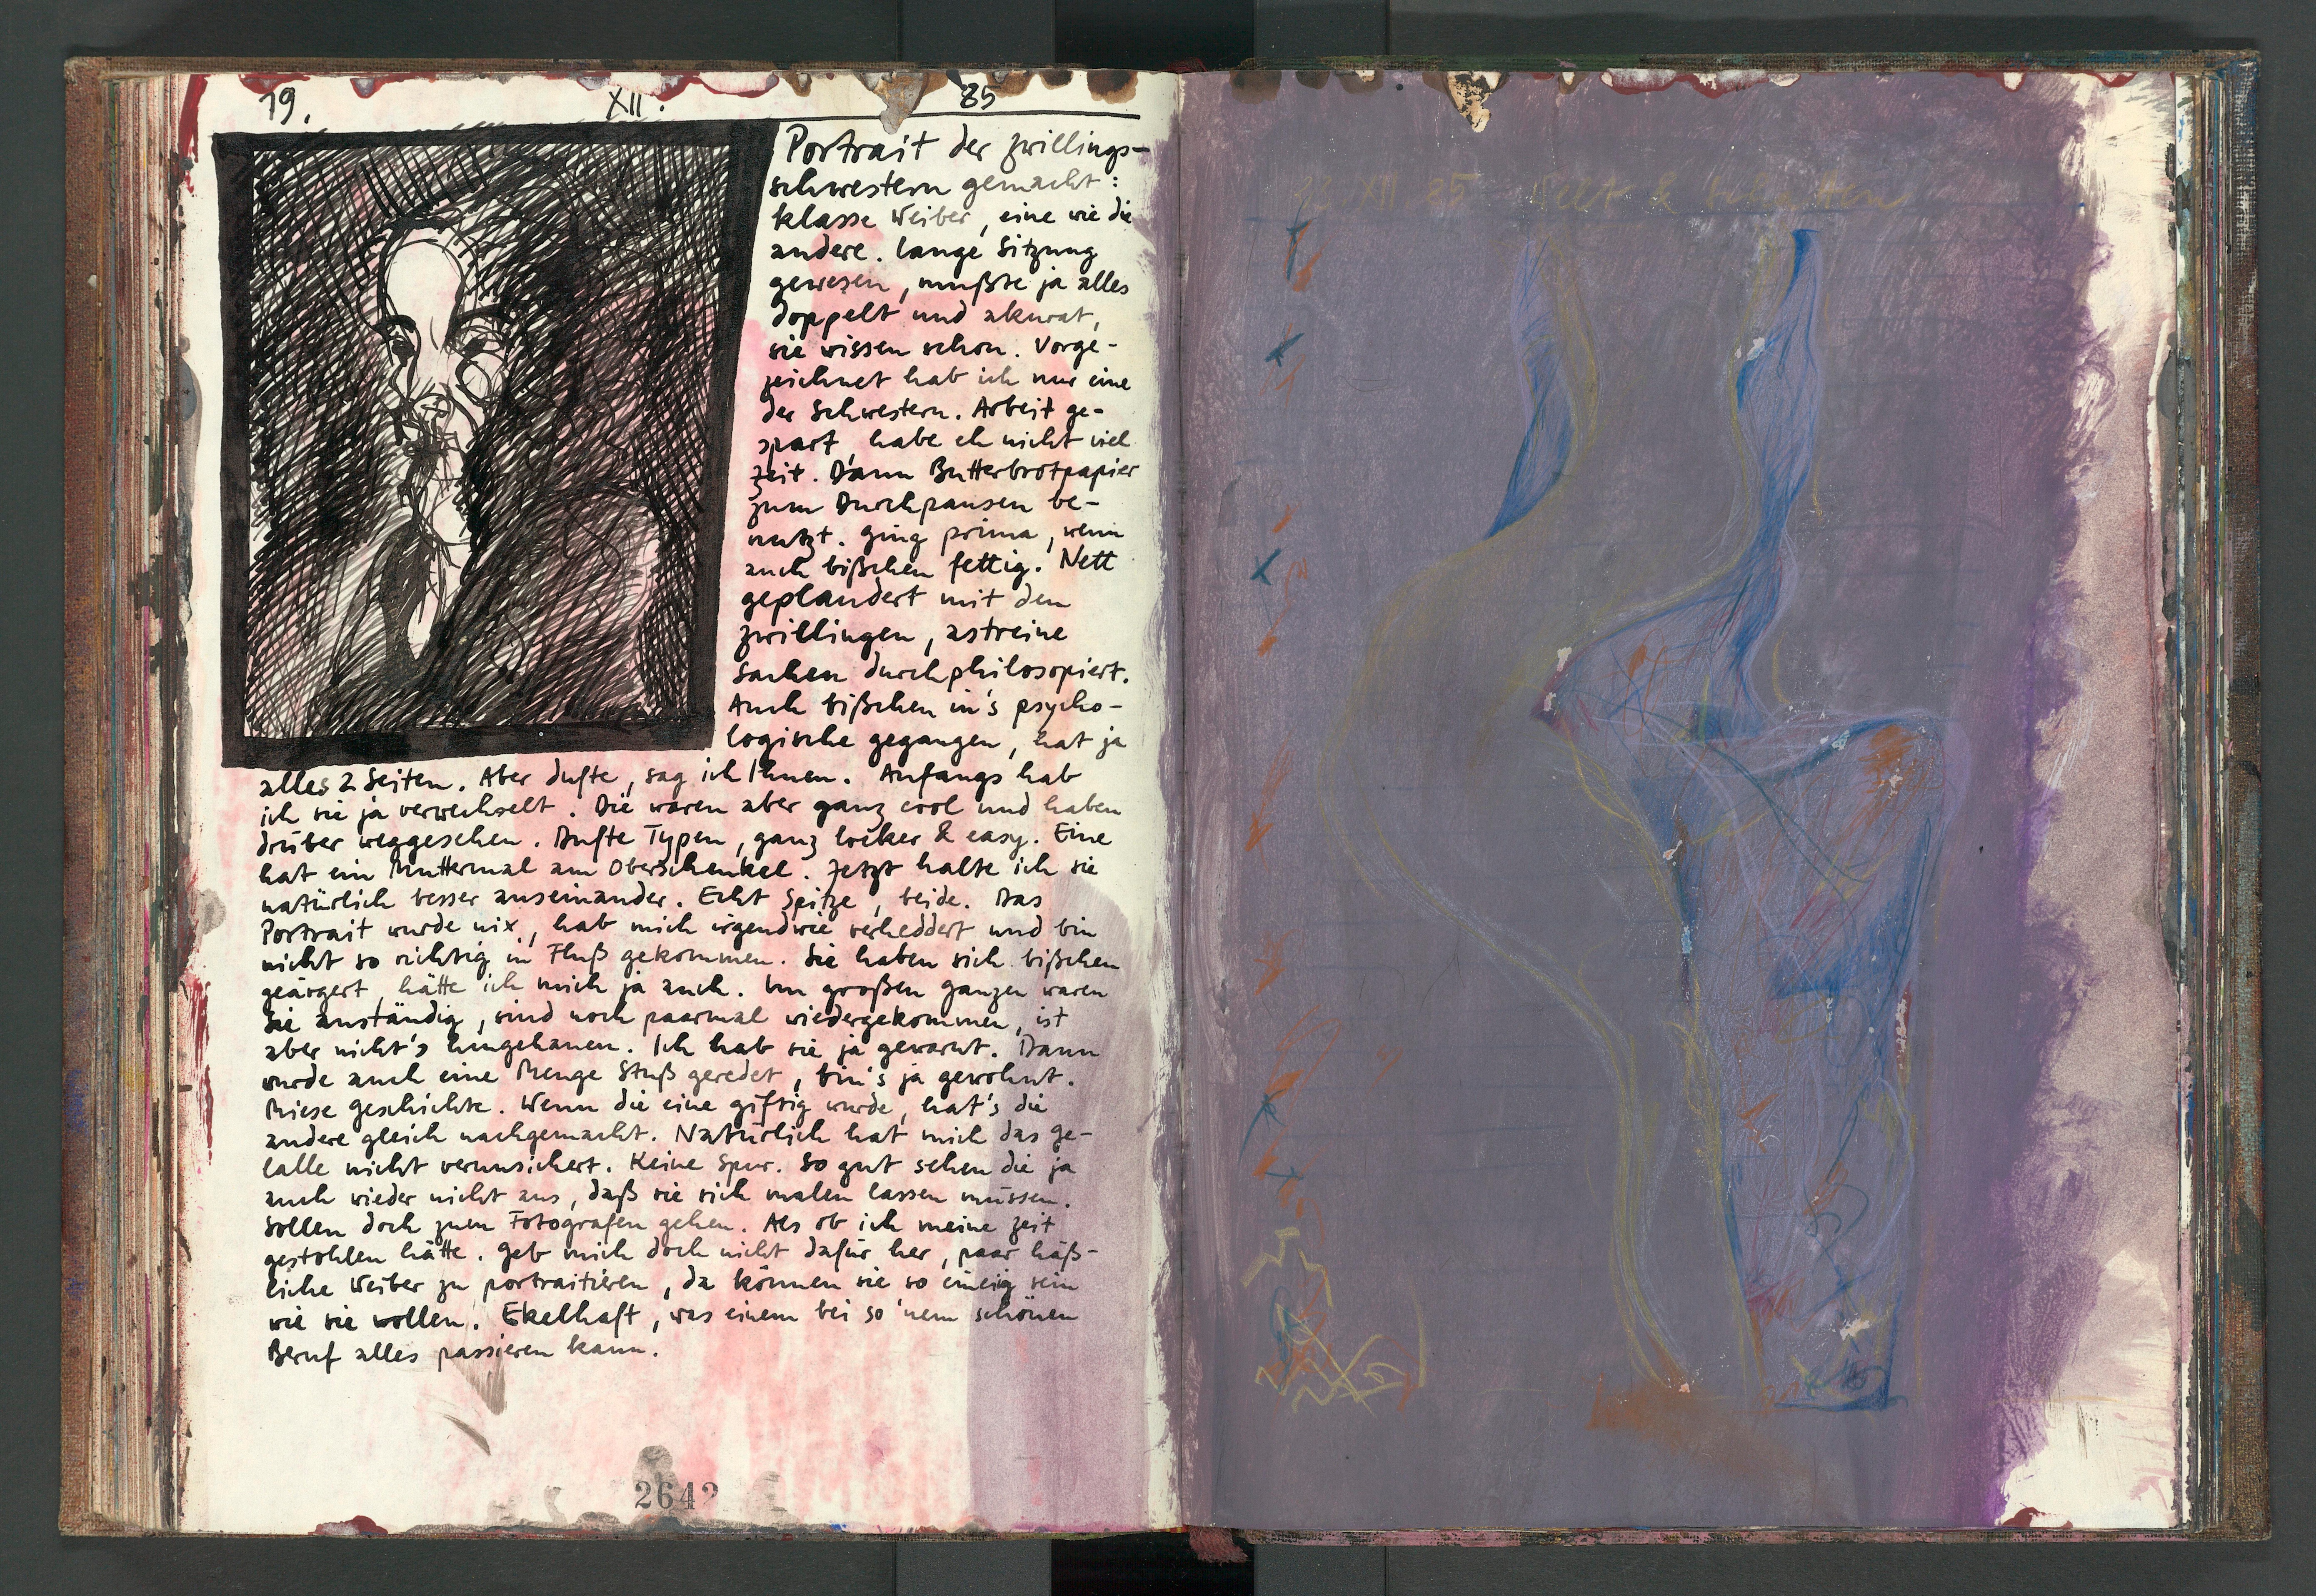 19. XII. 85
Portrait der Zwillings-
schwestern gemacht:
klasse Weiber, eine wie die
andere. Lange Sitzung
gewesen, mußte ja alles
doppelt und akurat,
sie wissen schon. Vorge-
zeichnet hab ich nur eine
der Schwestern. Arbeit ge-
spart, habe eh nicht viel
Zeit. Dann Butterbrotpapier
zum Durchpausen be-
nutzt. Ging prima, wenn
auch bißchen fettig. Nett
geplaudert mit den
Zwillingen, astreine
Sachen durchphilosopiert.
Auch bißchen in's psycho-
logische gegangen, hat ja
alles 2 Seiten. Aber dufte, sag ich Ihnen. Anfangs hab
ich sie ja verwechselt. Die waren aber ganz cool und haben
drüber weggesehen. Dufte Typen, ganz locker & easy. Eine
hat ein Muttermal am Oberschenkel. Jetzt halte ich sie
natürlich besser auseinander. Echt Spitze, beide. Das
Portrait wurde nix, hab mich irgendwie verheddert und bin
nicht so richtig in Fluß gekommen. Sie haben sich bißchen
geärgert, hätte ich mich ja auch. Im großen ganzen waren
sie anständig, sind noch paarmal wiedergekommen, ist
aber nicht's hingehauen. Ich hab sie ja gewarnt. Dann
wurde auch eine Menge Stuß geredet, bin's ja gewohnt.
Miese Geschichte. Wenn die eine giftig wurde, hat's die
andere gleich nachgemacht. Natürlich hat mich das ge-
lalle nicht verunsichert. Keine Spur. So gut sehen die ja
auch wieder nicht aus, daß sie sich malen lassen müssen.
Sollen doch zum Fotografen gehen. Als ob ich meine Zeit
gestohlen hätte. Geb mich doch nicht dafür her, paar häß-
liche Weiber zu portraitieren, da können sie so eineiig sein
wie sie wollen. Ekelhaft, was einem bei so 'nem schönen
Beruf alles passieren kann.
2642
XII. 85 &